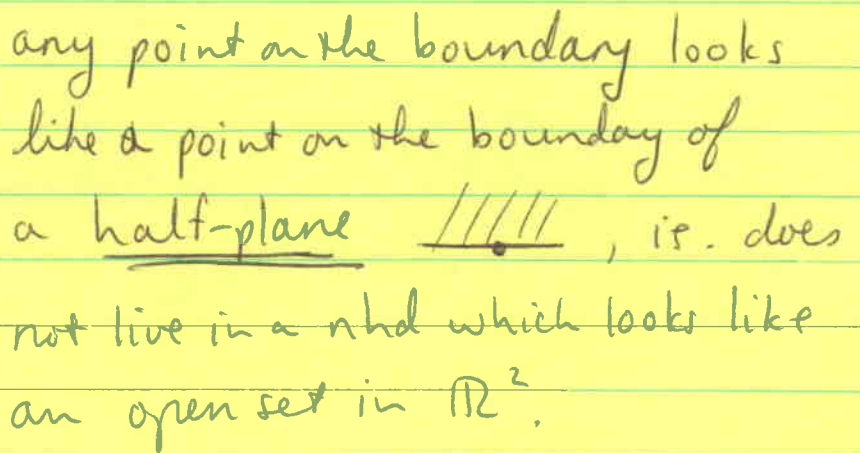 any point on the boundary looks
like a point on the bounday of
a half-plane , ie. does
not live in a nhd which looks like
an open set in ℝ².